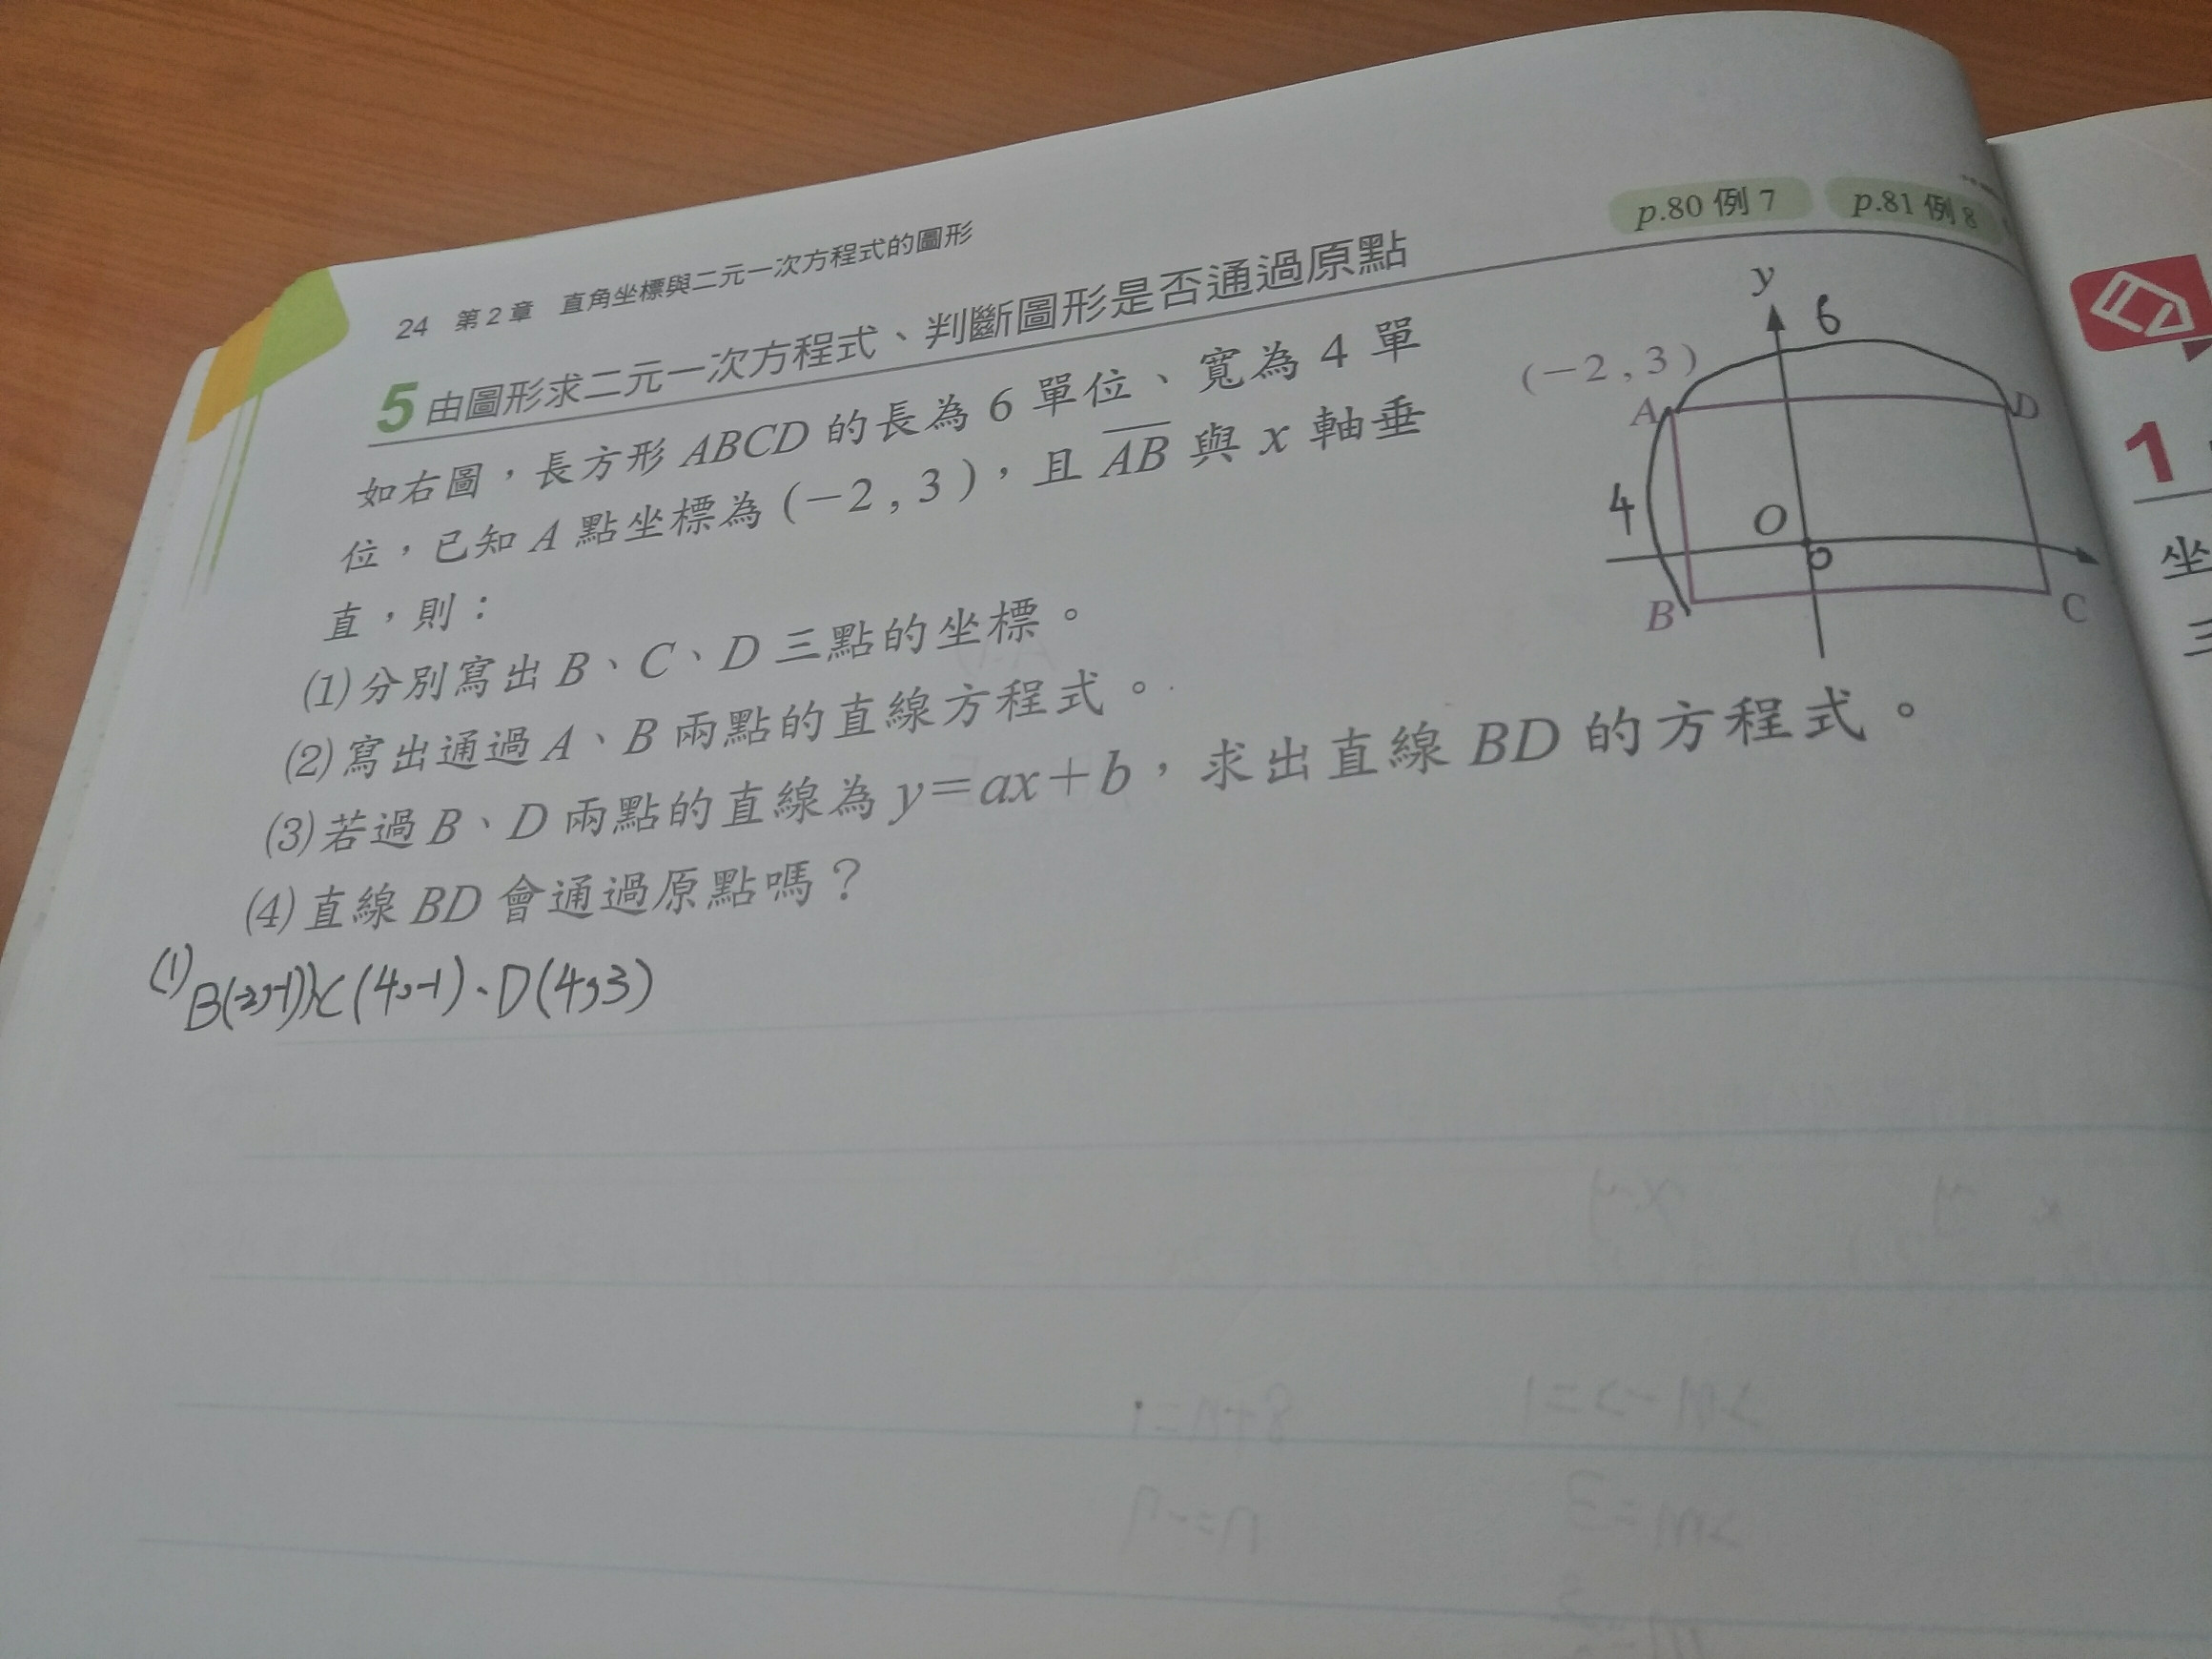 24 第2章 直角坐標與二元一次方程式的圖形
p.80 例 7 p.81 例 8
5 由圖形求二元一次方程式、判斷圖形是否通過原點
如右圖，長方形 ABCD 的長為 6 單位、寬為 4 單
位，已知 A 點坐標為 (−2 , 3 )，且 AB 與 x 軸垂
直，則：
(1)分別寫出 B、C、D 三點的坐標。
(2)寫出通過 A、B 兩點的直線方程式。
(3)若過 B、D 兩點的直線為 y=ax+b，求出直線 BD 的方程式。
(4)直線 BD 會通過原點嗎？
y
6
(−2 , 3 )
A
D
4
O
0
B
C
(1)
B(-2,-1)、C(4,-1)、D(4,3)
1
坐
三